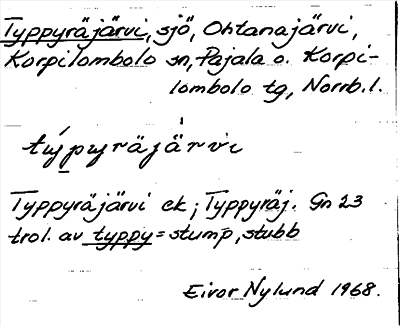 Typpyräjärvi, sjö, Ohtanajärvi,
Korpilombolo sn, Pajala o. Korpi-
lombolo tg, Norrb. l.
týpyräjärvi
Typpyräjärvi ek; Typpyräj. Gn 23
trol. av typpy = stump, stubb
Eivor Nylund 1968.